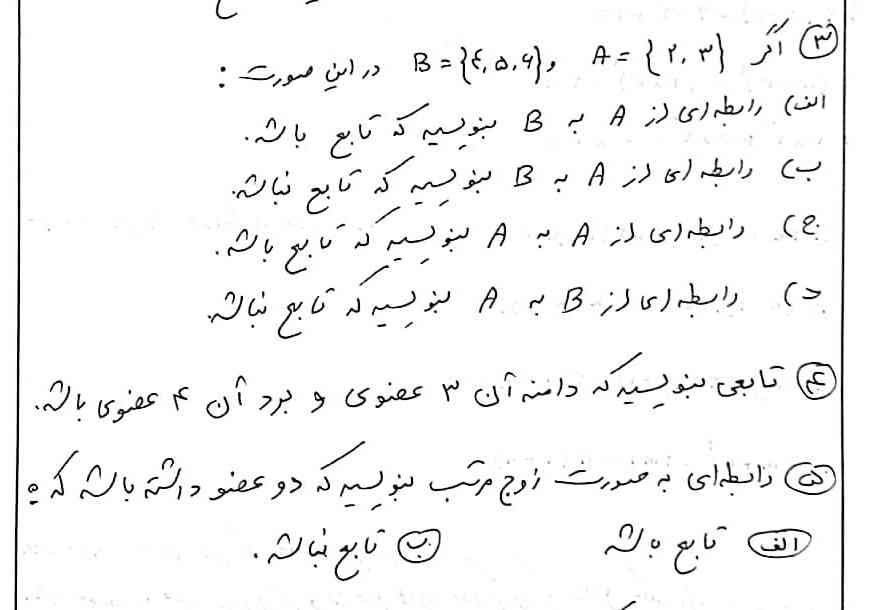 ۳ اگر A = {۲, ۳} و B = {۴, ۵, ۶} در این صورت :
الف) رابطه‌ای از A به B بنویسید که تابع باشد.
ب) رابطه‌ای از A به B بنویسید که تابع نباشد.
ج) رابطه‌ای از A به A بنویسید که تابع باشد.
د) رابطه‌ای از B به A بنویسید که تابع نباشد.
۴ تابعی بنویسید که دامنه آن ۳ عضوی و برد آن ۴ عضوی باشد.
۵ رابطه‌ای به صورت زوج مرتب بنویسید که دو عضو داشته باشد که :
الف تابع باشد ب تابع نباشد.